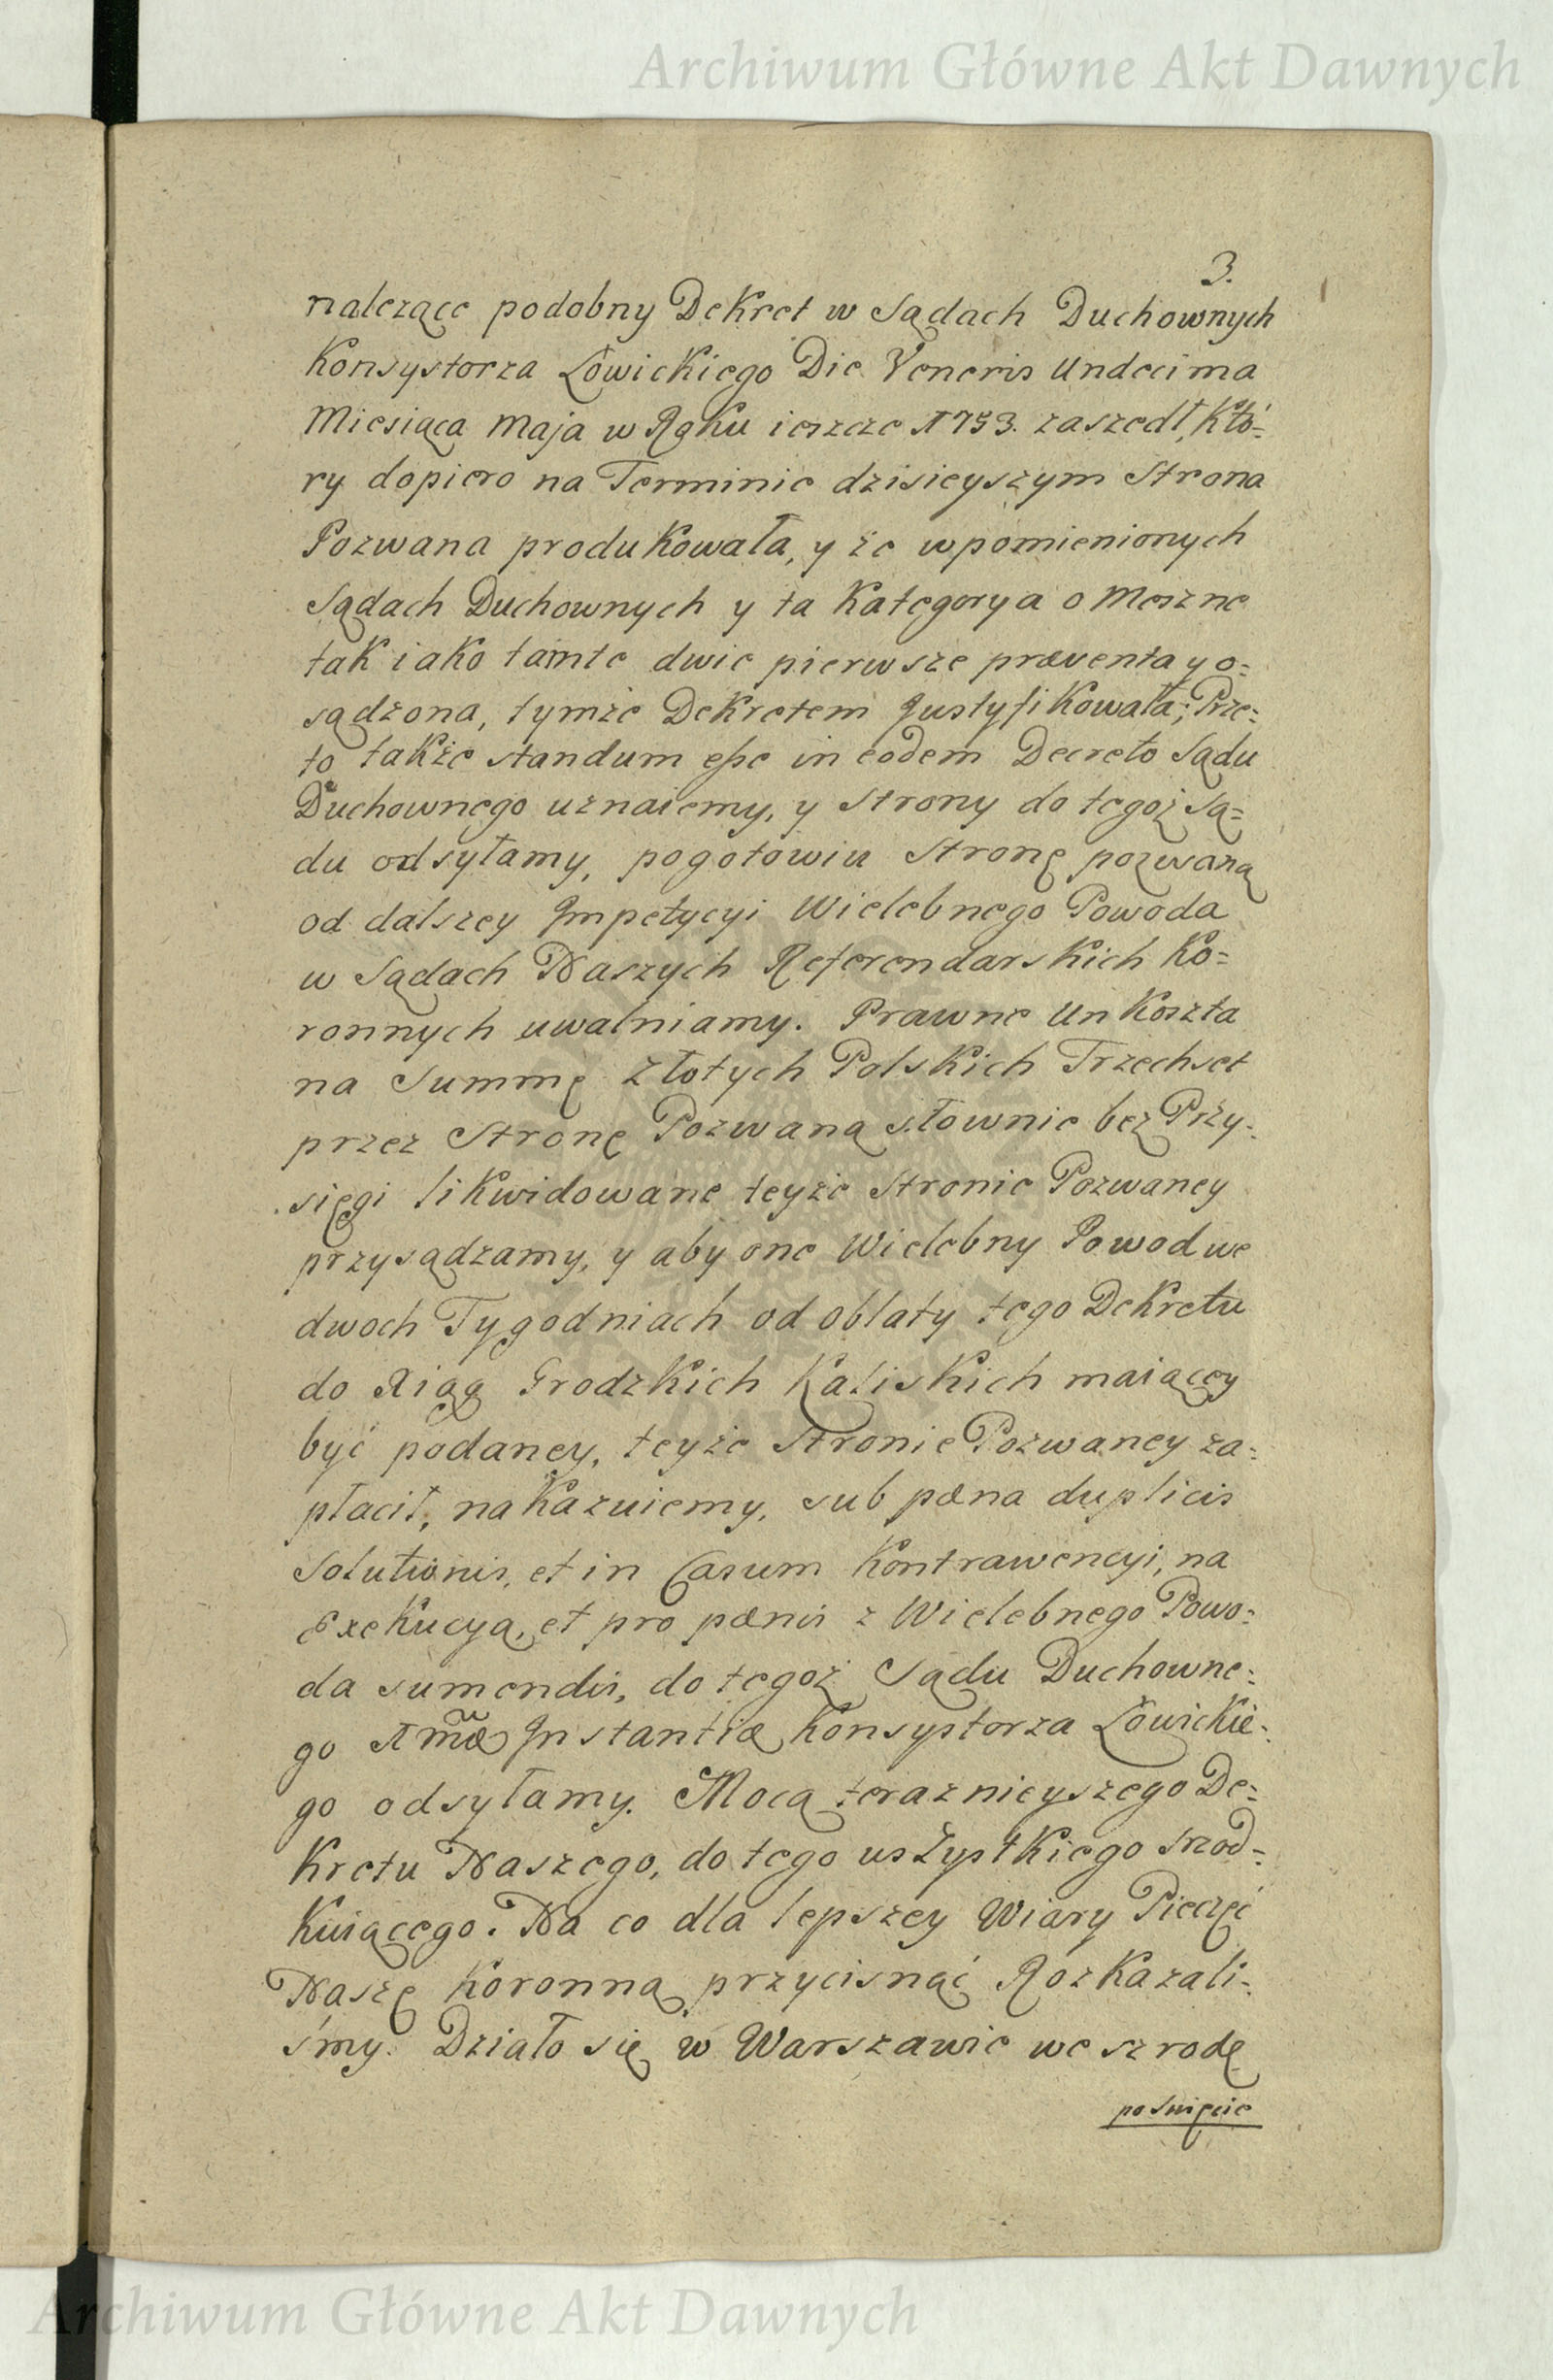 Archiwum Główne Akt Dawnych
3.
należące podobny Dekret w Sądach Duchownych
Konsystorza Łowickiego Die Veneris Undecima
Miesiąca Maja w Roku ieszcze 1753. zaszedł, Któ=
ry dopiero na Terminie dzisieyszym Strona
Pozwana produkowała, y że wpomienionych
Sądach Duchownych y ta Kategorya o Meszne
tak iako tamte dwie pierwsze præventa y o=
sądzona, tymże Dekretem Justyfikowała; Prze=
to także standum esse in eodem Decreto Sądu
Duchownego uznaiemy, y Strony do tegoż Są=
du odsyłamy, pogotowiu Stronę pozwaną
od dalszey Impetycyi Wielebnego Powoda
w Sądach Naszych Referendarskich Ko=
ronnych uwalniamy. Prawne Unkoszta
na Summę Złotych Polskich Trzechset
przez Stronę Pozwaną słownie bez Przy=
sięgi likwidowane teyże Stronie Pozwaney
przysądzamy, y aby one Wielebny Powod we
dwoch Tygodniach od oblaty tego Dekretu
do Xiąg Grodzkich Kaliskich maiącey
być podaney, teyże Stronie Pozwaney za=
płacił, nakazuiemy, sub pæna duplicis
Solutionis, et in Casum Kontrawencyi, na
Exekucyą, et pro pænis z Wielebnego Powo=
da sumendis, do tegoż Sądu Duchowne=
go 1mæ Instantiæ Konsystorza Łowickie=
go odsyłamy. Mocą teraznieyszego De=
Kretu Naszego, do tego wszystkiego srzod=
Kuiącego. Na co dla lepszey Wiary Pieczęć
Naszę Koronną przycisnąć Rozkazali=
śmy. Działo się w Warszawie we szrodę
po Swięcie
Archiwum Główne Akt Dawnych